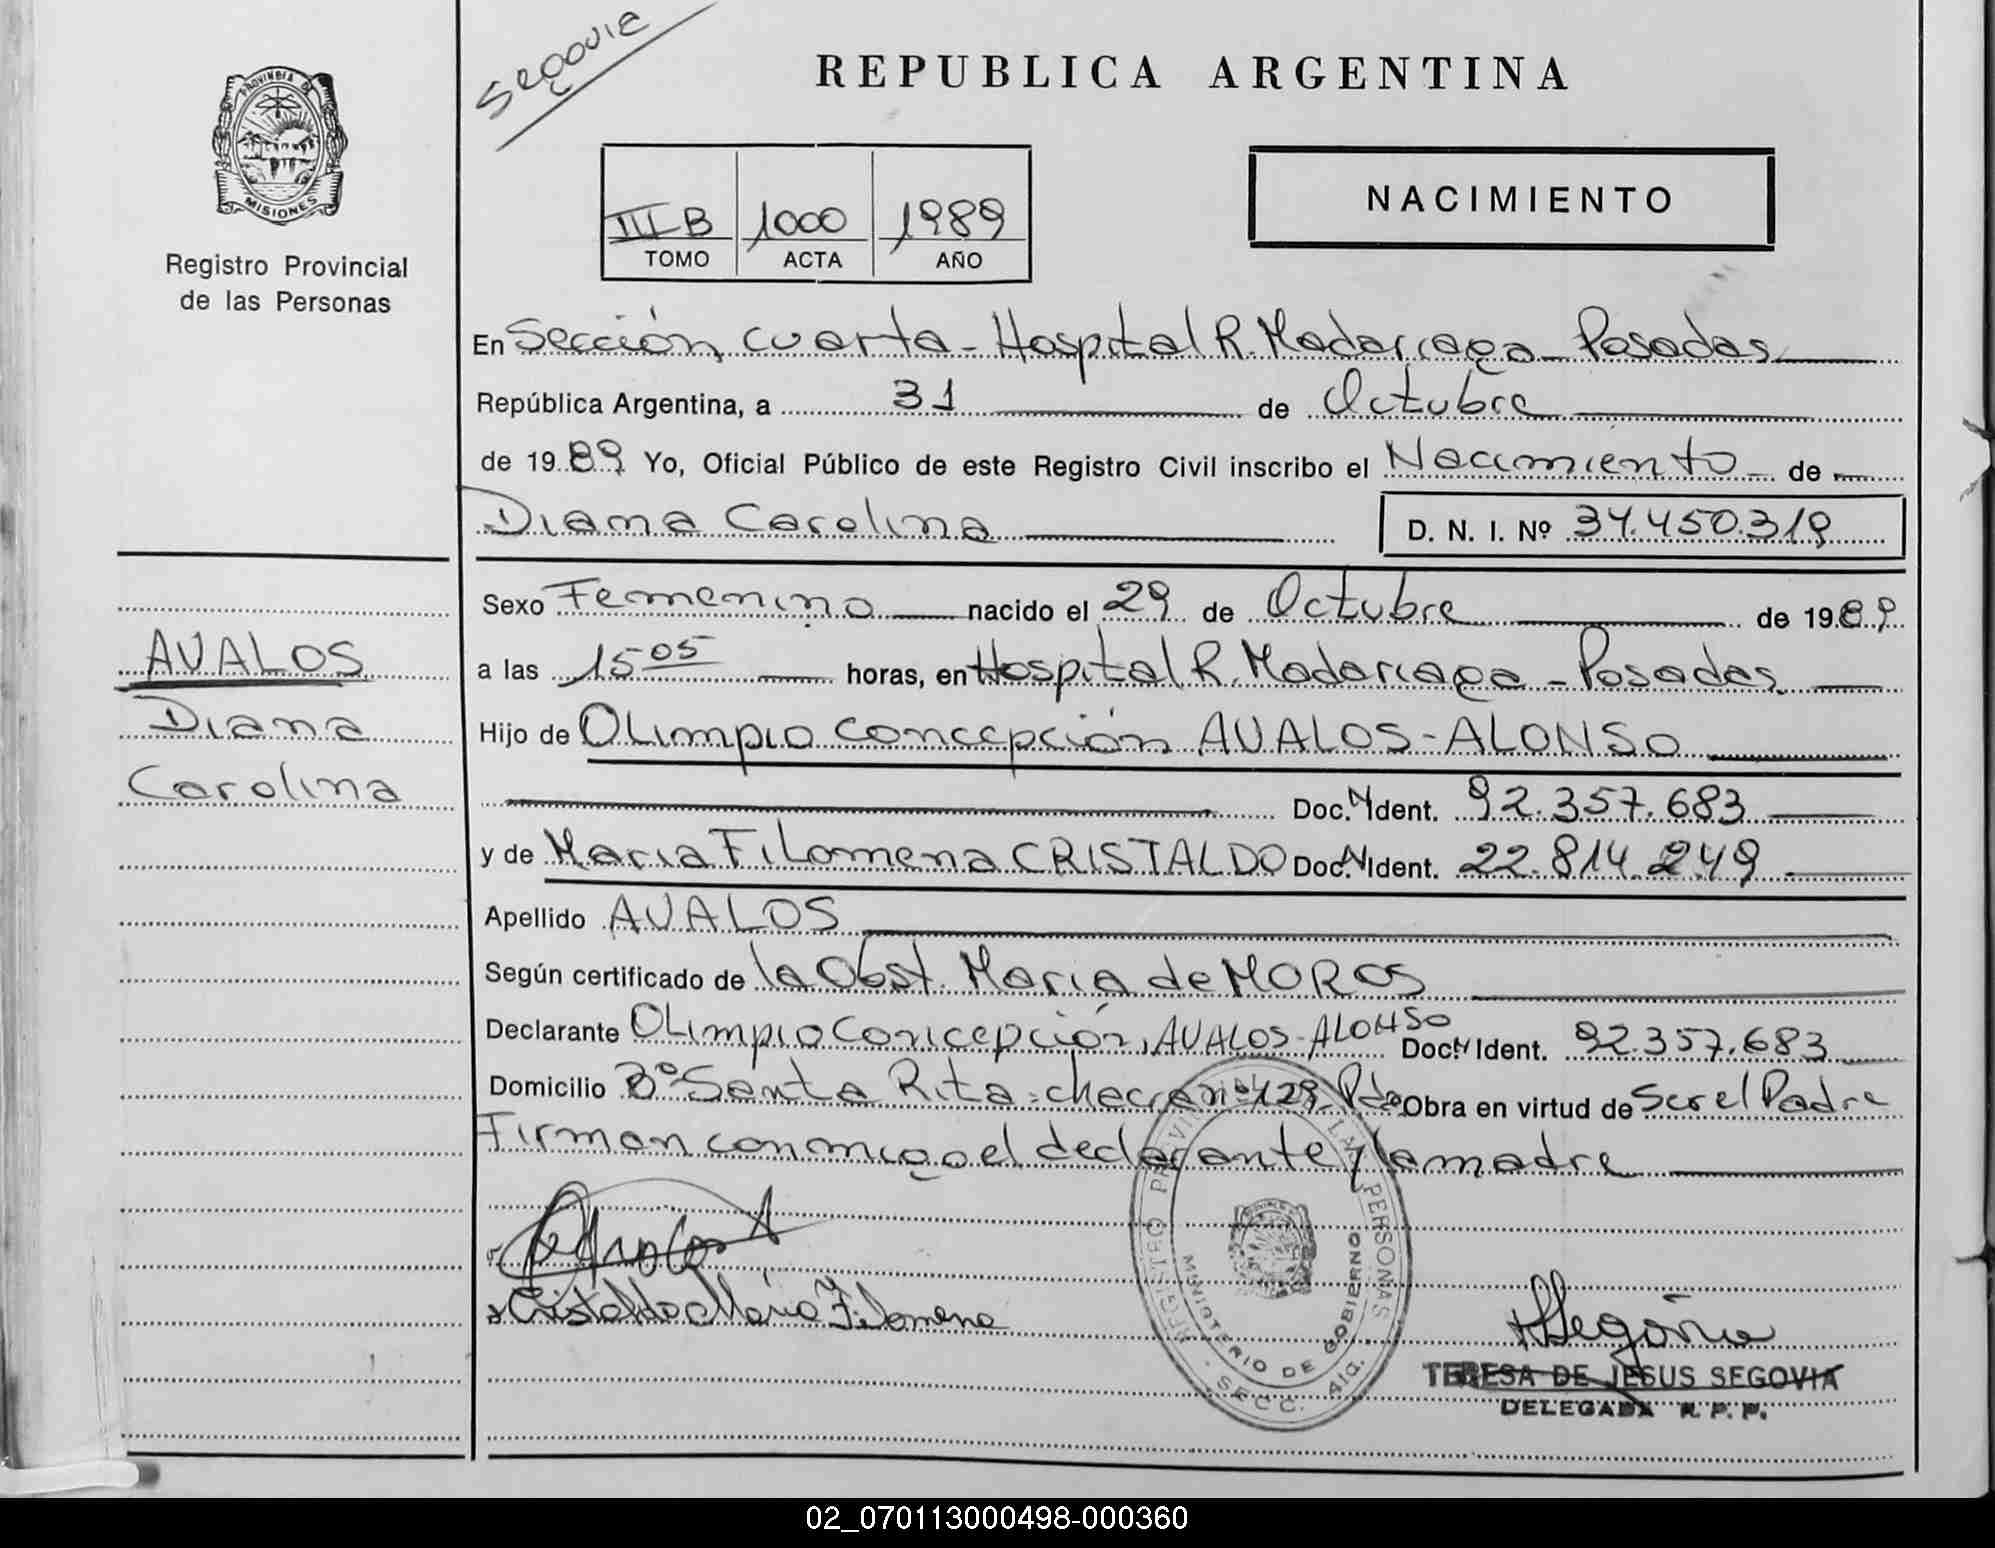 Segovia
REPUBLICA ARGENTINA
PROVINCIA DE
MISIONES
Registro Provincial
de las Personas
III B 1000 1989
TOMO ACTA AÑO
NACIMIENTO
En Sección cuarta - Hospital R. Madariaga - Posadas
República Argentina, a 31 de Octubre
de 1989 Yo, Oficial Público de este Registro Civil inscribo el Nacimiento de
Diana Carolina D. N. I. Nº 34.450.319
AVALOS
Diana
Carolina
Sexo Femenino nacido el 29 de Octubre de 1989
a las 15 05 horas, en Hospital R. Madariaga - Posadas
Hijo de OLimpio Concepción AVALOS - ALONSO
Doc. N Ident. 92.357.683
y de Maria FiLomena CRISTALDO Doc. N Ident. 22.814.249
Apellido AVALOS
Según certificado de la Obst. Maria de MOROS
Declarante OLimpio Concepción AVALOS - ALONSO Doc. N Ident. 92.357.683
Domicilio Bº Santa Rita - chacra nº 129 Pdas Obra en virtud de Ser el Padre
Firman conmigo el declarante y la madre
Cristaldo Maria Filomena
REGISTRO PROVINCIAL DE LAS PERSONAS
MINISTERIO DE GOBIERNO
SECC. 4ta.
Segovia
TERESA DE JESUS SEGOVIA
DELEGADA R. P. P.
02_070113000498-000360